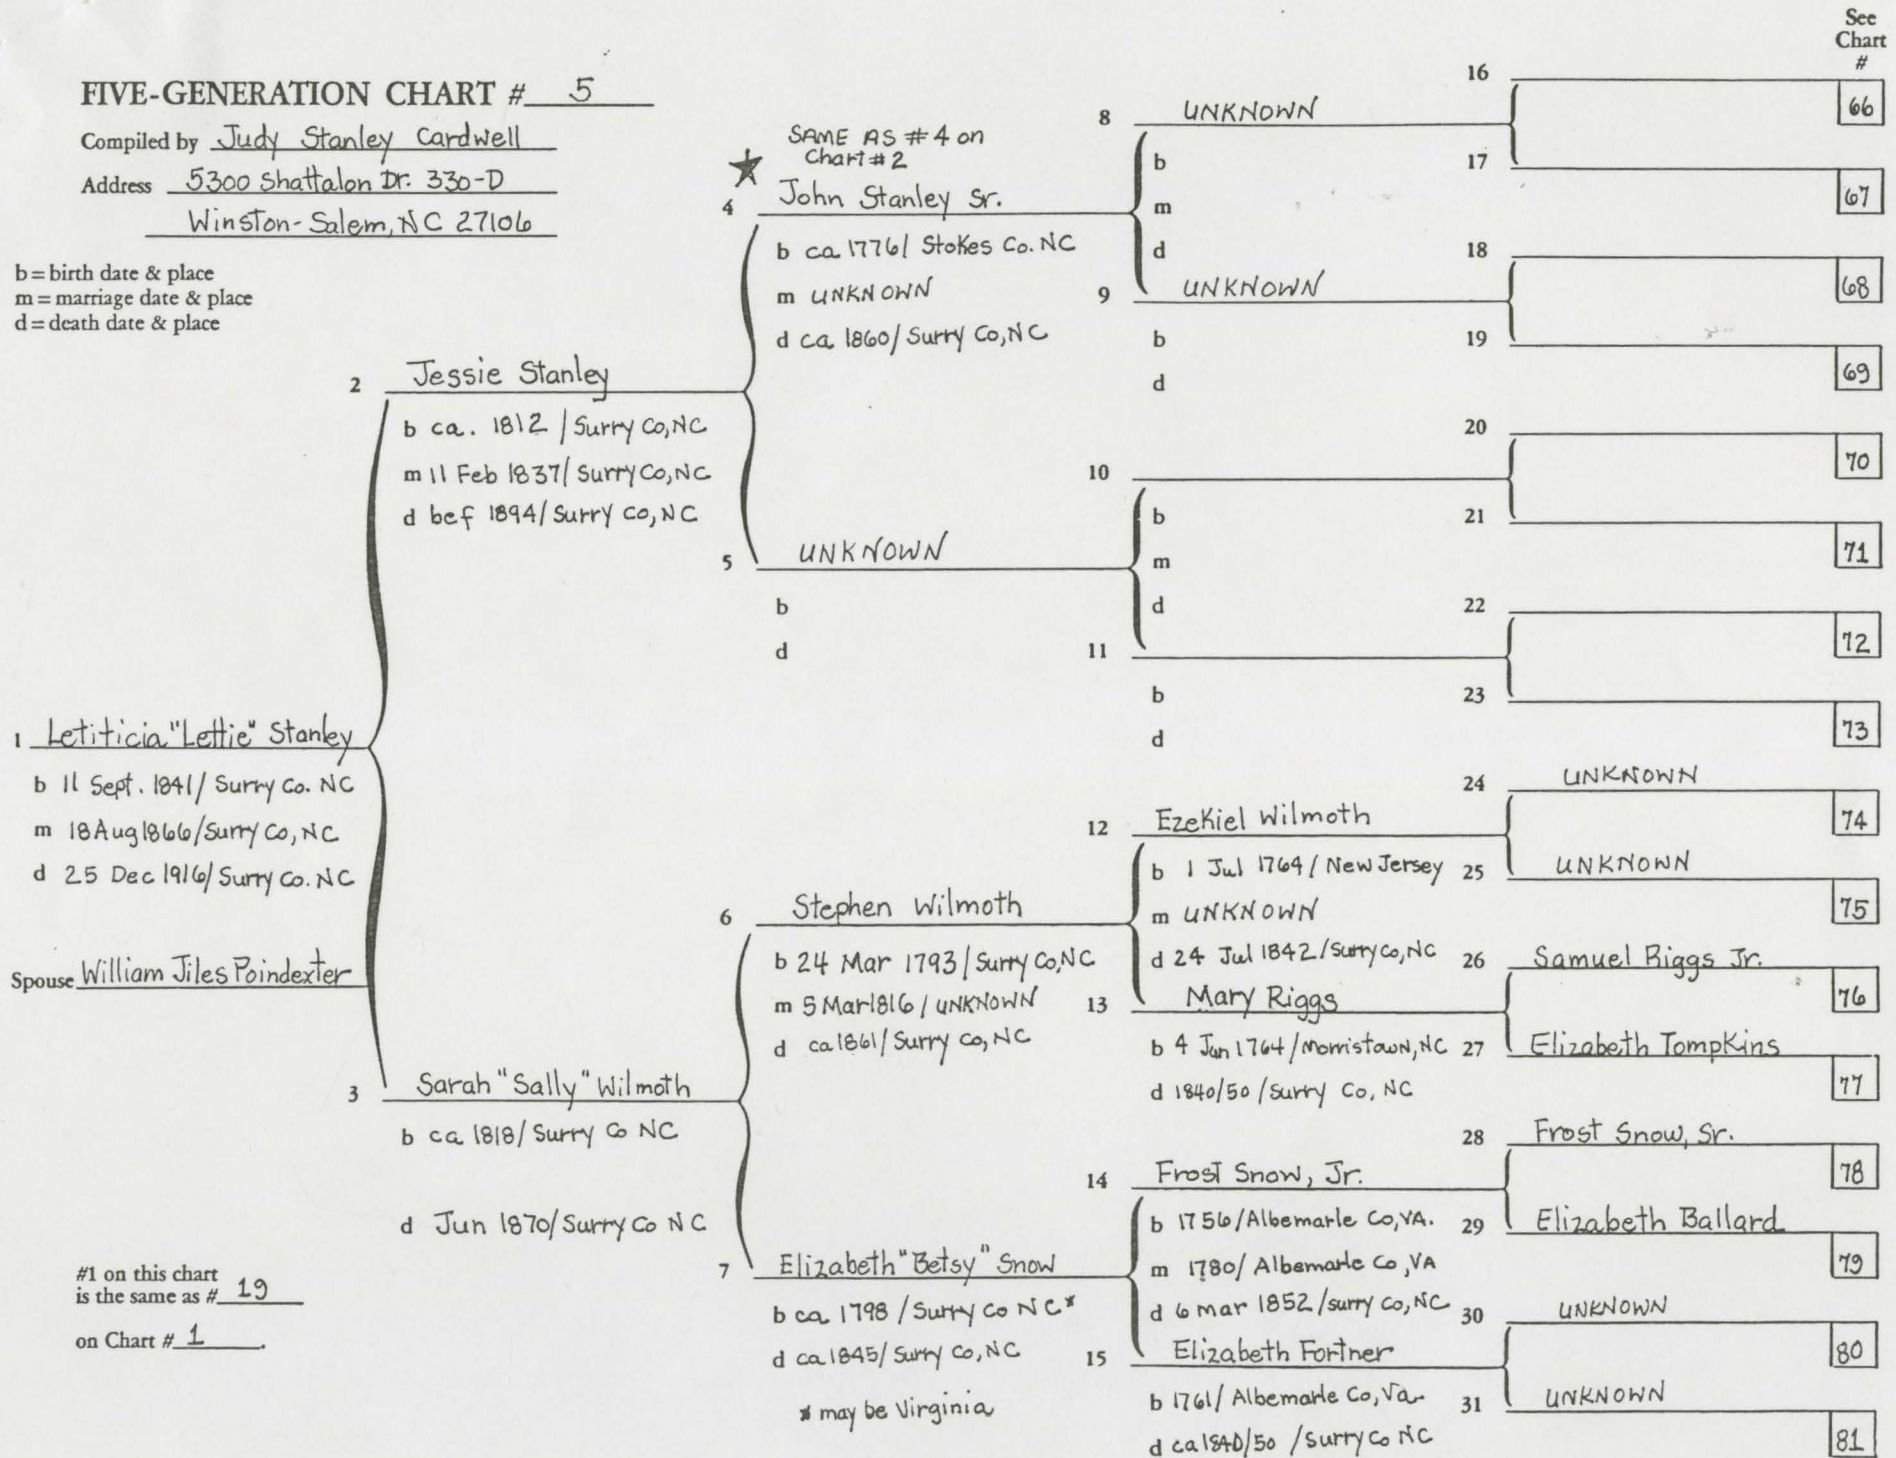 See
Chart
#
FIVE-GENERATION CHART # 5
Compiled by Judy Stanley Cardwell
Address 5300 Shattalon Dr. 330-D
Winston-Salem, NC 27106
b = birth date & place
m = marriage date & place
d = death date & place
1 Letiticia "Lettie" Stanley
b 11 Sept. 1841/ Surry Co. NC
m 18 Aug 1866/Surry Co, NC
d 25 Dec 1916/ Surry Co. NC
Spouse William Jiles Poindexter
#1 on this chart
is the same as # 19
on Chart # 1.
2 Jessie Stanley
b ca. 1812 / Surry Co, NC
m 11 Feb 1837/ Surry Co, NC
d bef 1894/ Surry Co, NC
3 Sarah "Sally" Wilmoth
b ca 1818/ Surry Co NC
d Jun 1870/ Surry Co NC
SAME AS #4 on
Chart #2
4 John Stanley Sr.
b ca 1776/ Stokes Co. NC
m UNKNOWN
d ca 1860/ Surry Co, NC
5 UNKNOWN
b
d
6 Stephen Wilmoth
b 24 Mar 1793/ Surry Co, NC
m 5 Mar 1816 / UNKNOWN
d ca 1861/ Surry Co, NC
7 Elizabeth "Betsy" Snow
b ca 1798 / Surry Co NC*
d ca 1845/ Surry Co, NC
* may be Virginia
8 UNKNOWN
b
m
d
9 UNKNOWN
b
d
10
b
m
d
11
b
d
12 Ezekiel Wilmoth
b 1 Jul 1764 / New Jersey
m UNKNOWN
d 24 Jul 1842 / Surry Co, NC
13 Mary Riggs
b 4 Jan 1764 / Morristown, NC
d 1840/50 / Surry Co, NC
14 Frost Snow, Jr.
b 1756/Albemarle Co, VA.
m 1780/ Albemarle Co, VA
d 6 Mar 1852 / Surry Co, NC
15 Elizabeth Fortner
b 1761/ Albemarle Co, Va.
d ca 1840/50 / Surry Co NC
16
66
17
67
18
68
19
69
20
70
21
71
22
72
23
73
24 UNKNOWN
74
25 UNKNOWN
75
26 Samuel Riggs Jr.
76
27 Elizabeth Tompkins
77
28 Frost Snow, Sr.
78
29 Elizabeth Ballard
79
30 UNKNOWN
80
31 UNKNOWN
81